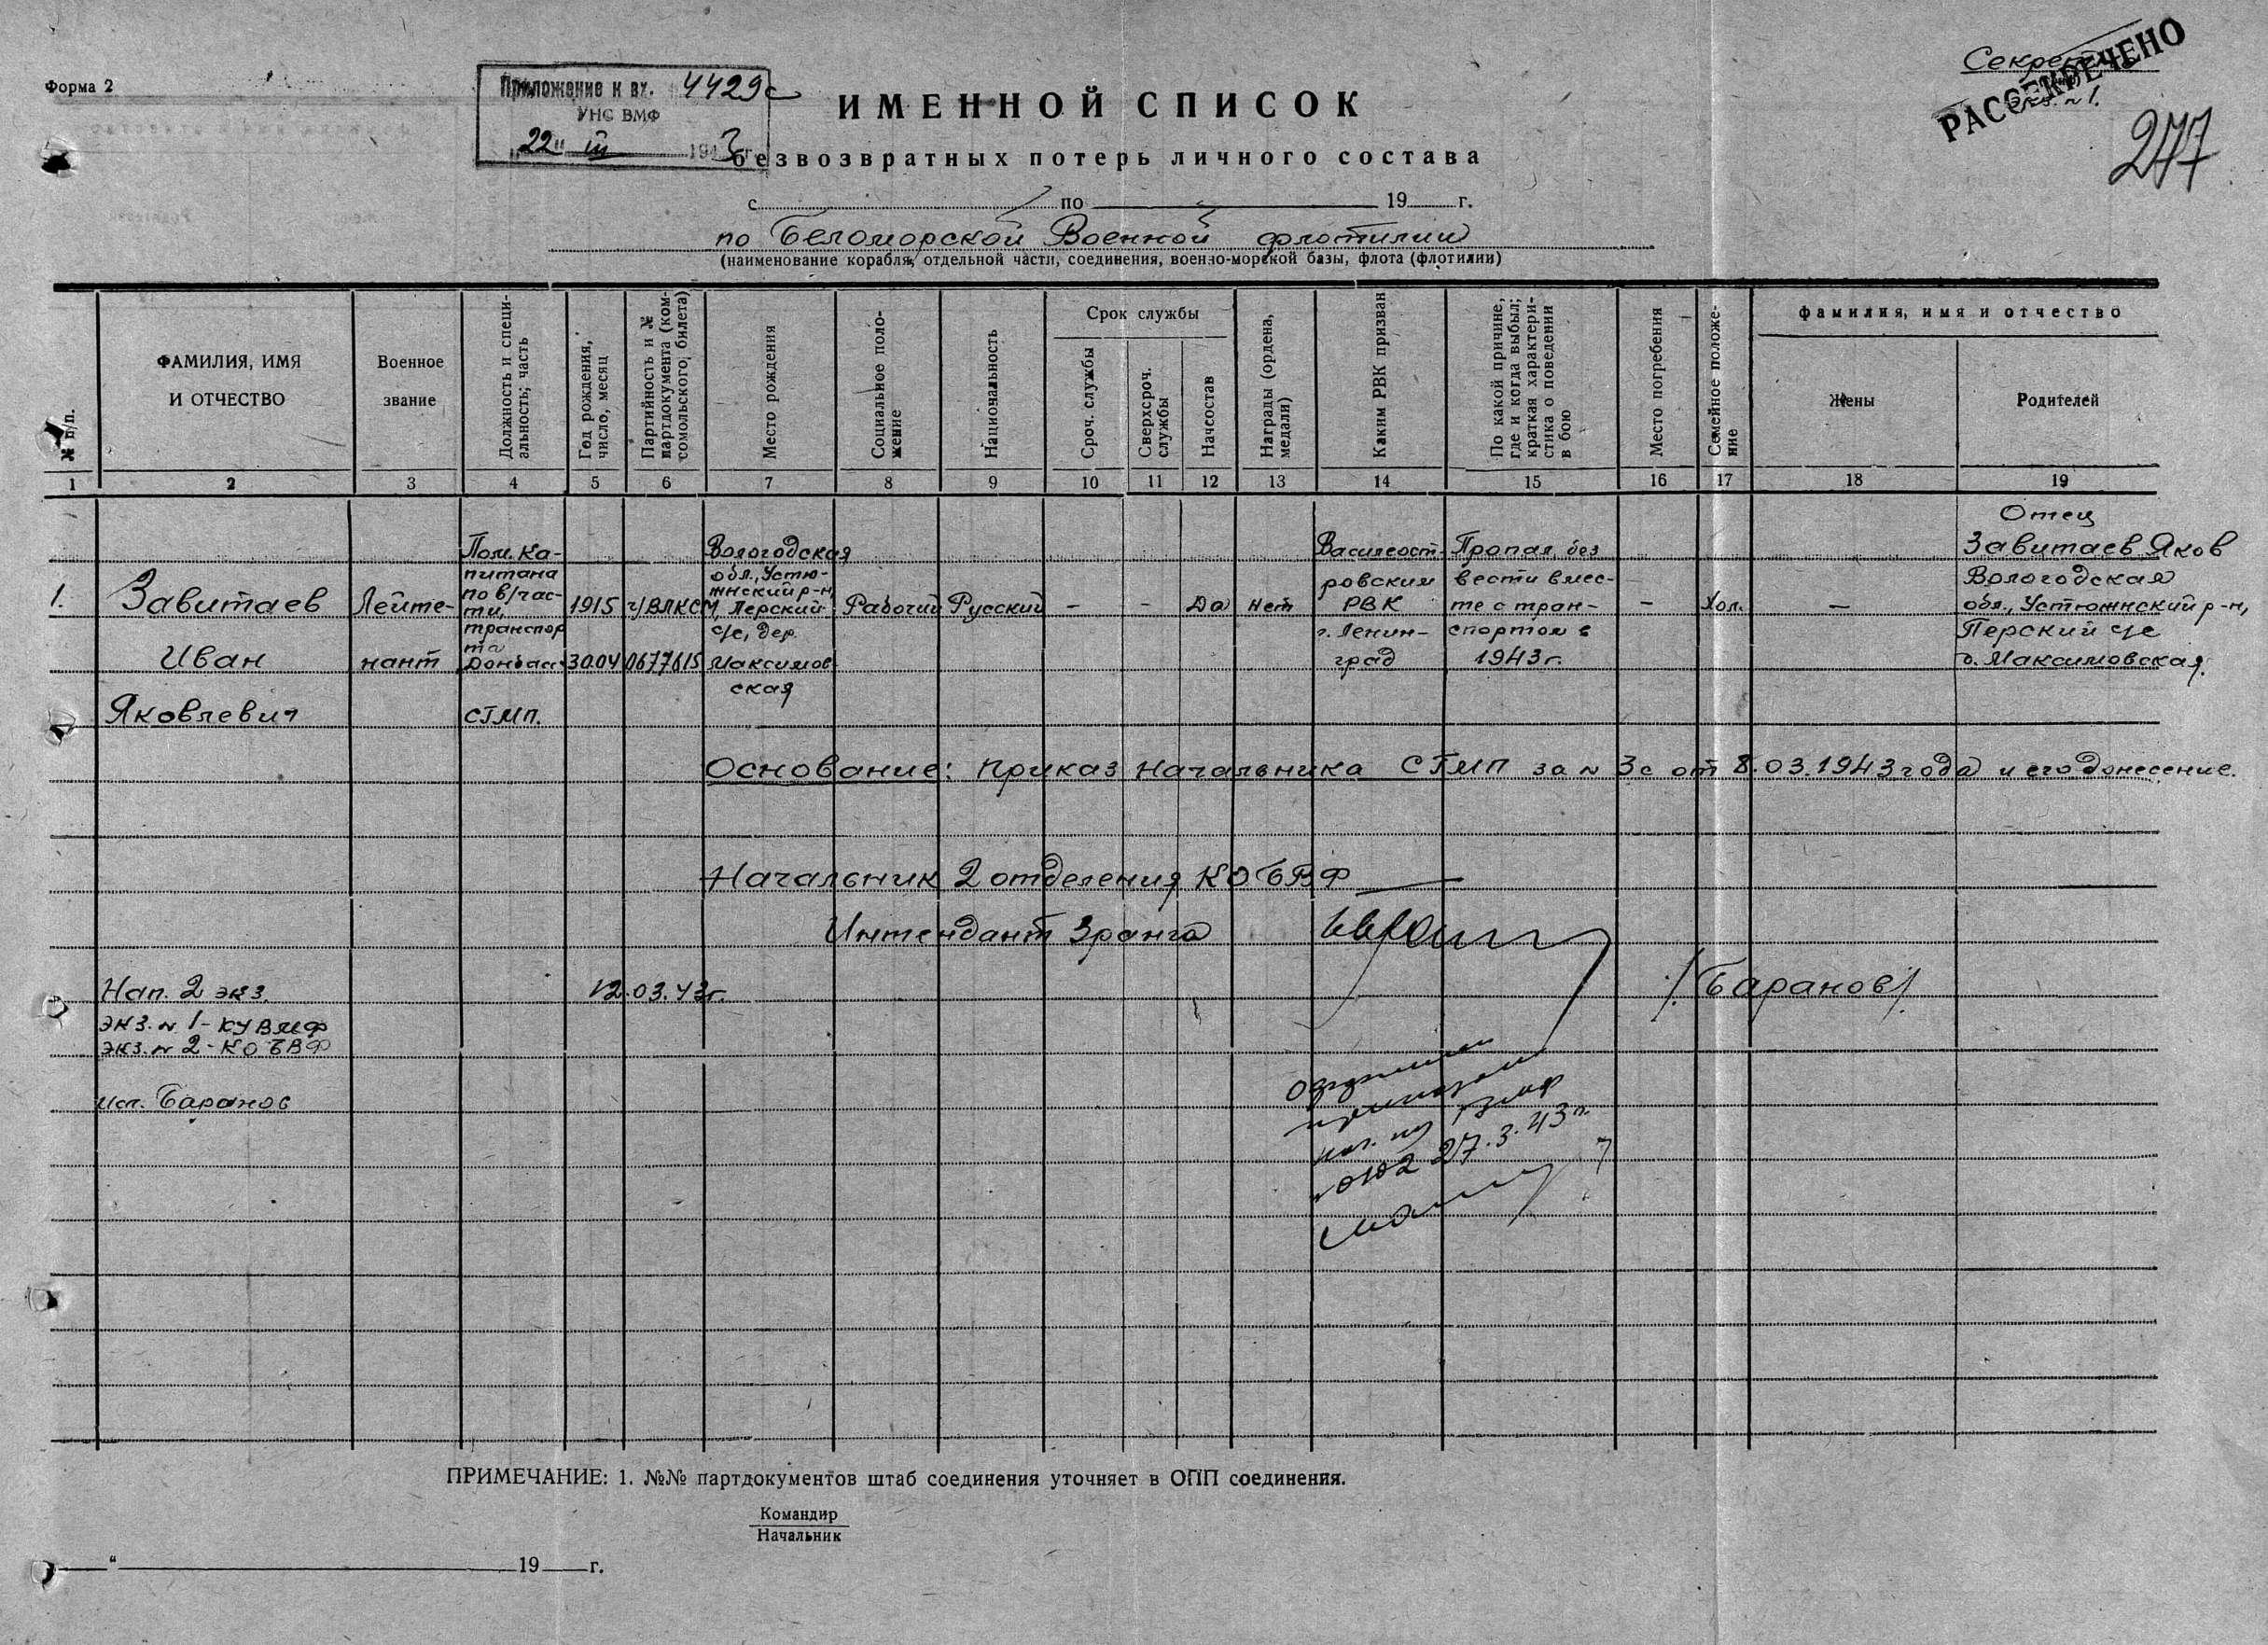 Форма 2
Приложение к вх. 4429с
УНС ВМФ
„22" III 1943 г.
Секретно
РАССЕКРЕЧЕНО
экз. № 1.
277
ИМЕННОЙ СПИСОК
безвозвратных потерь личного состава
с по 19 г.
по Беломорской Военной флотилии
(наименование корабля, отдельной части, соединения, военно-морской базы, флота (флотилии)
№ п/п.
ФАМИЛИЯ, ИМЯ
И ОТЧЕСТВО
Военное
звание
Должность и специ-
альность; часть
Год рождения,
число, месяц
Партийность и №
партдокумента (ком-
сомольского, билета)
Место рождения
Социальное поло-
жение
Национальность
Срок службы
Сроч. службы
Сверхсроч.
службы
Начсостав
Награды (ордена,
медали)
Каким РВК призван
По какой причине,
где и когда выбыл;
краткая характери-
стика о поведении
в бою
Место погребения
Семейное положе-
ние
фамилия, имя и отчество
Жены
Родителей
1 2 3 4 5 6 7 8 9 10 11 12 13 14 15 16 17 18 19
1.
Завитаев
Иван
Яковлевич
Лейте-
нант
Пом. ка-
питана
по в/час-
ти,
транспор
та
Донбасс
СГМП.
1915
30.04
ч/ВЛКСМ
0677615
Вологодская
обл., Устю-
жнский р-н,
Перский
с/с, дер.
Максимов
ская
Рабочий
Русский
–
–
Да
Нет
Василеост-
ровским
РВК
г. Ленин-
град
Пропал без
вести вмес-
те с тран-
спортом в
1943 г.
–
Хол.
–
Отец
Завитаев Яков
Вологодская
обл., Устюжнский р-н,
Перский с/с
д. Максимовская.
Основание: Приказ Начальника СГМП за № 3с от 8.03.1943 года и его донесение.
Начальник 2 отделения КО БВФ
Интендант 3 ранга
/Баранов/.
Нап. 2 экз. 12.03.43г.
экз. № 1 - КУ ВМФ
экз. № 2 - КО БВФ
исп. Баранов
27.3.43 г.
ПРИМЕЧАНИЕ: 1. №№ партдокументов штаб соединения уточняет в ОПП соединения.
Командир
Начальник
" 19 г.